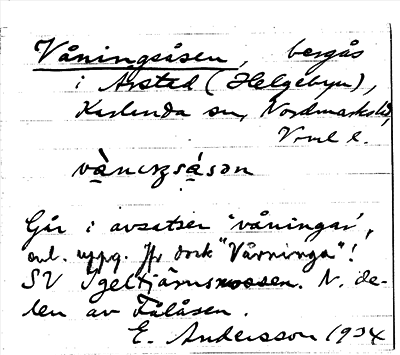 Våningsåsen, bergås
i Årsted (Helgebyn),
Karlanda sn, Nordmarks hd,
Vrml l.
vàningsásən
Går i avsatser "våningar",
enl. uppg. Jfr dock "Vårninga"!
SV Igeltjärnsmossen. N. de-
len av Fålåsen.
E. Andersson 1934